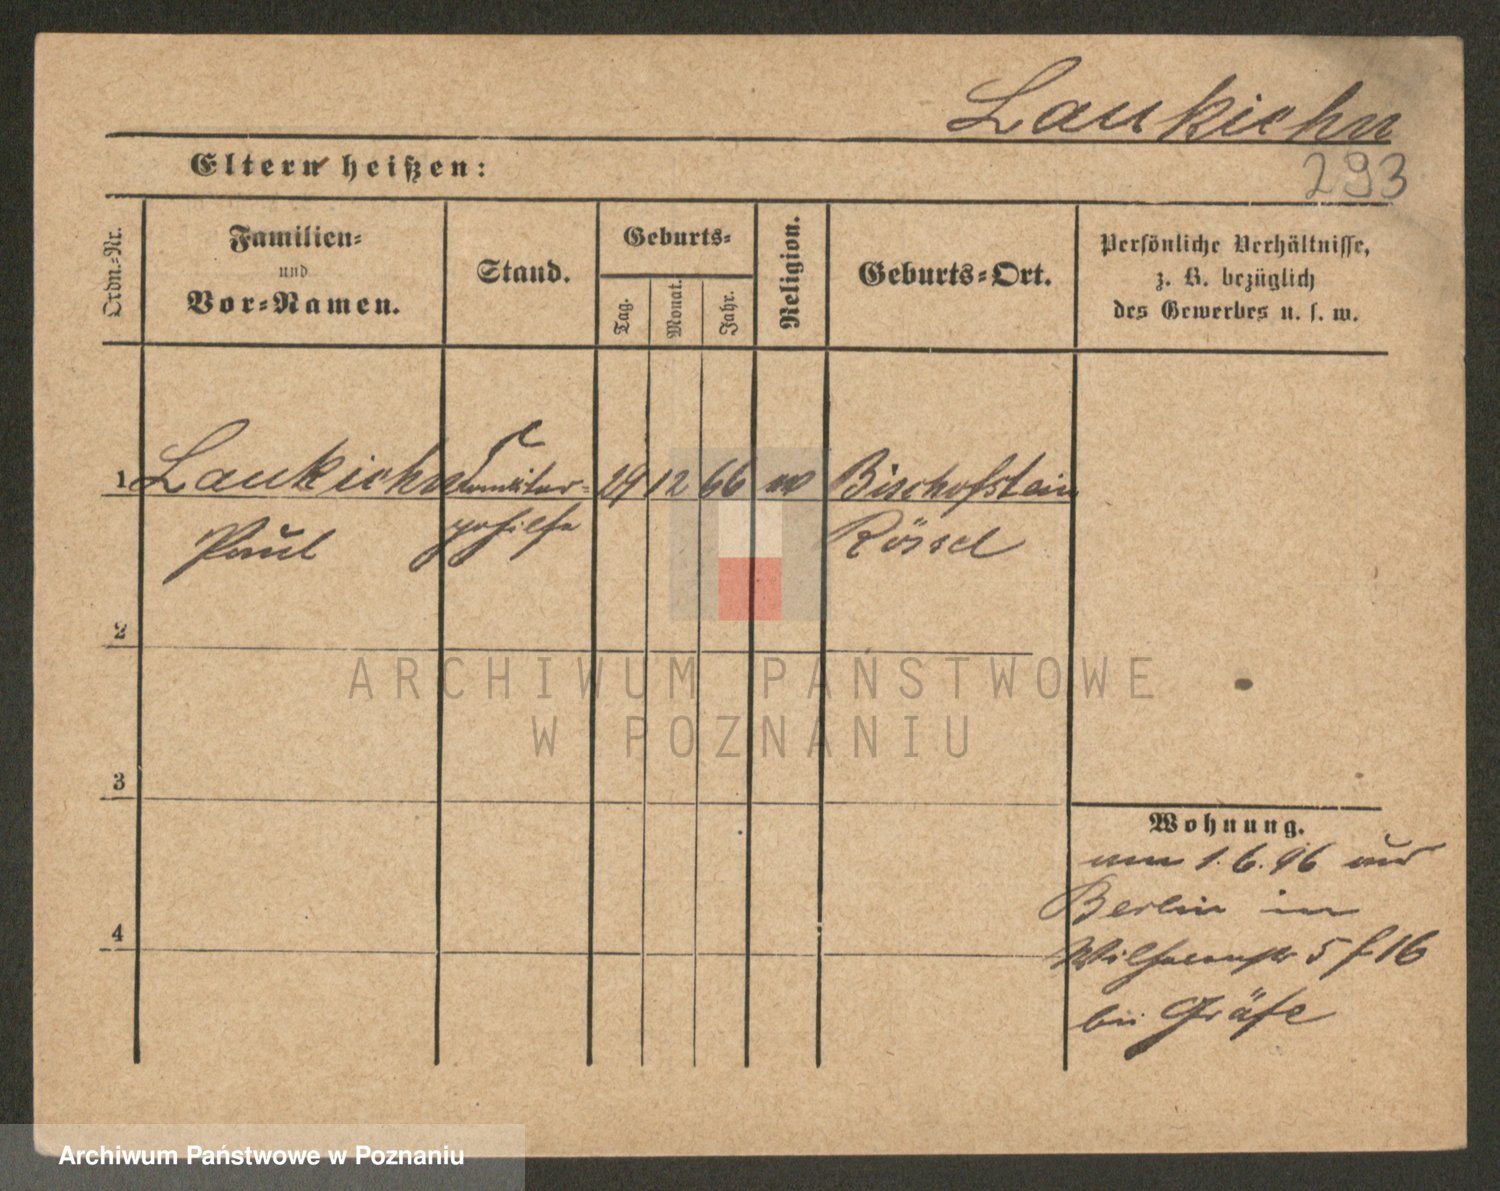 Laukiehn
Eltern heißen:
293
Ordn.-Nr.
Familien-
und
Vor-Namen.
Stand.
Geburts-
Tag.
Monat.
Jahr.
Religion.
Geburts-Ort.
Persönliche Verhältnisse,
z. B. bezüglich
des Gewerbes u. s. w.
1 Laukiehn 29 12 66 Bischofstein
Paul gehilfe Rössel
2
ARCHIWUM PAŃSTWOWE
W POZNANIU
3
Wohnung.
am 1.6.96 aus
Berlin in
4
Wilhelmstr 5 16
bei Gräfe
Archiwum Państwowe w Poznaniu